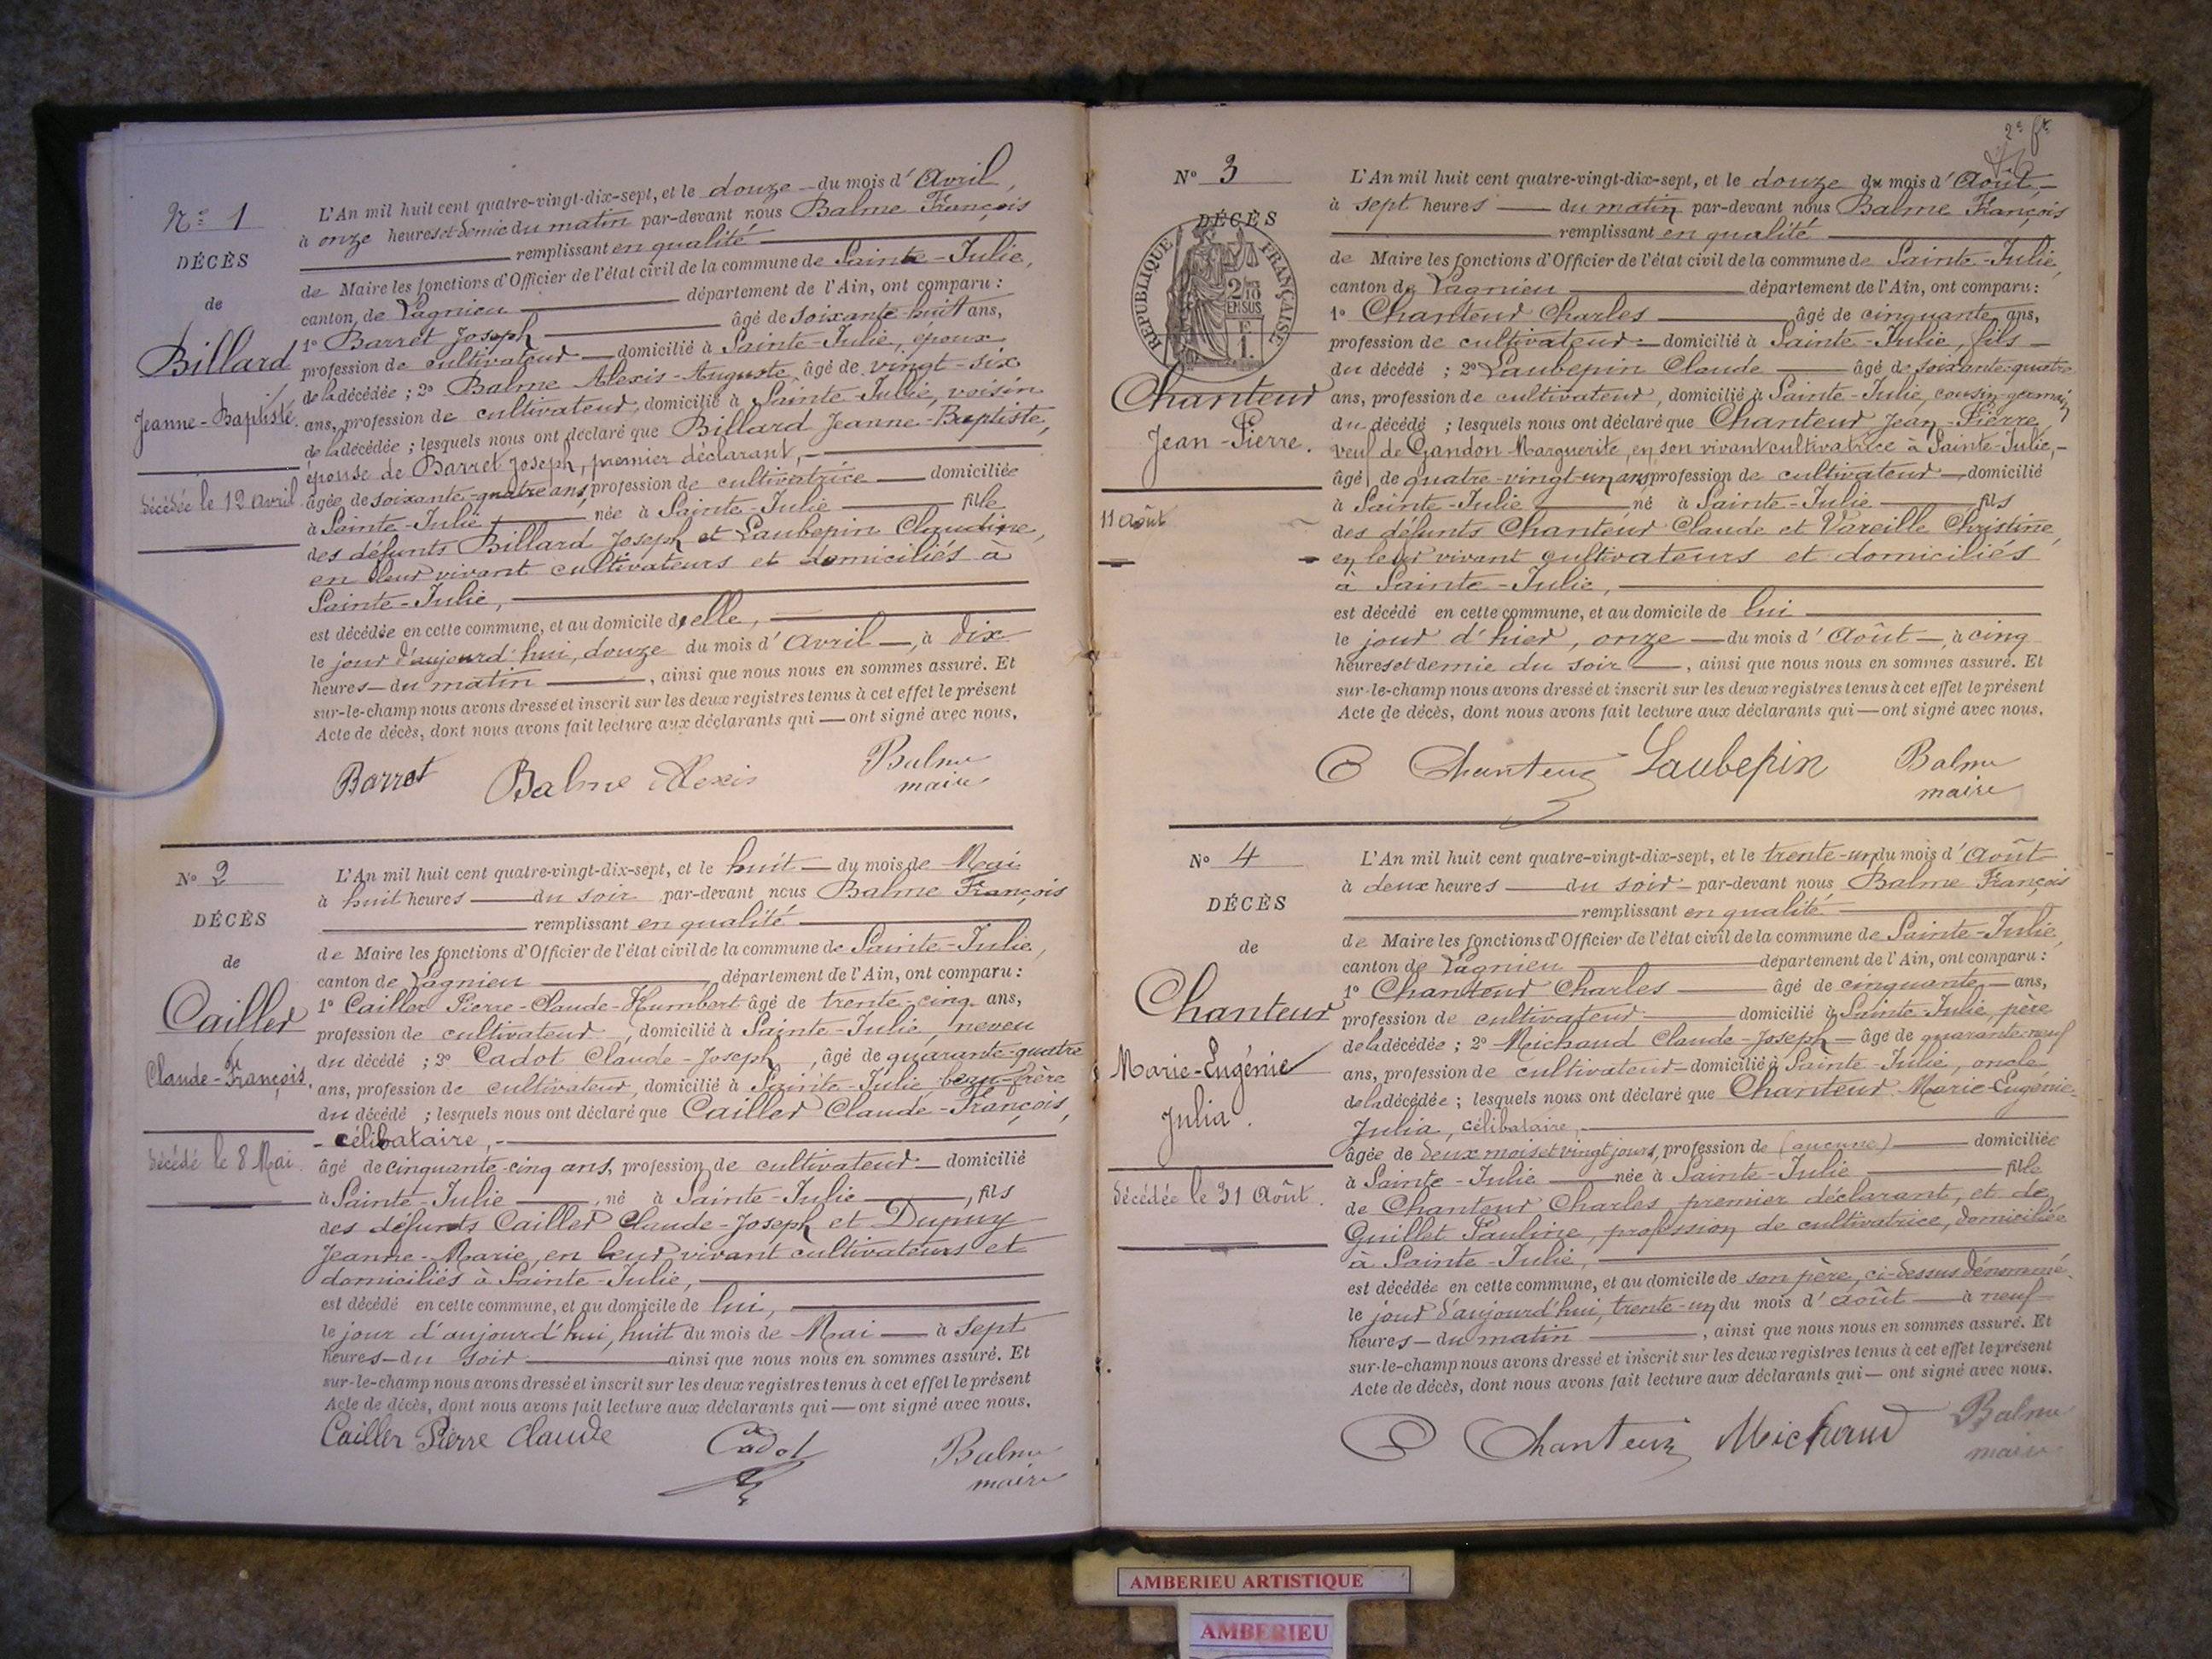 Nº 1
DÉCÈS
de
Billard
Jeanne-Baptiste.
décédée le 12 avril
L'An mil huit cent quatre-vingt-dix-sept, et le douze du mois d'Avril,
à onze heures et demie du matin par-devant nous Balme François
remplissant en qualité
de Maire les fonctions d'Officier de l'état civil de la commune de Sainte-Julie,
canton de Lagnieu département de l'Ain, ont comparu :
1º Barret Joseph âgé de soixante-huit ans,
profession de cultivateur domicilié à Sainte-Julie, époux
de la décédée ; 2º Balme Alexis-Auguste, âgé de vingt-six
ans, profession de cultivateur, domicilié à Sainte-Julie, voisin
de la décédée ; lesquels nous ont déclaré que Billard Jeanne-Baptiste,
épouse de Barret Joseph, premier déclarant,
âgée de soixante-quatre ans, profession de cultivatrice domiciliée
à Sainte-Julie, née à Sainte-Julie fille
des défunts Billard Joseph et Laubepin Claudine,
en leur vivant cultivateurs et domiciliés à
Sainte-Julie,
est décédée en cette commune, et au domicile d'elle,
le jour d'aujourd'hui, douze du mois d'Avril, à dix
heures du matin, ainsi que nous nous en sommes assuré. Et
sur-le-champ nous avons dressé et inscrit sur les deux registres tenus à cet effet le présent
Acte de décès, dont nous avons fait lecture aux déclarants qui ont signé avec nous.
Barret Balme Alexis Balme
maire
Nº 2
DÉCÈS
de
Cailler
Claude-François.
décédé le 8 Mai.
L'An mil huit cent quatre-vingt-dix-sept, et le huit du mois de Mai
à huit heures du soir par-devant nous Balme François
remplissant en qualité
de Maire les fonctions d'Officier de l'état civil de la commune de Sainte-Julie,
canton de Lagnieu, département de l'Ain, ont comparu :
1º Cailler Pierre-Claude-Humbert âgé de trente-cinq ans,
profession de cultivateur, domicilié à Sainte-Julie, neveu
du décédé ; 2º Cadot Claude-Joseph, âgé de quarante-quatre
ans, profession de cultivateur, domicilié à Sainte-Julie, beau-frère
du décédé ; lesquels nous ont déclaré que Cailler Claude-François,
célibataire,
âgé de cinquante-cinq ans, profession de cultivateur domicilié
à Sainte-Julie, né à Sainte-Julie, fils
des défunts Cailler Claude-Joseph et Dupuy
Jeanne-Marie, en leur vivant cultivateurs et
domiciliés à Sainte-Julie,
est décédé en cette commune, et au domicile de lui,
le jour d'aujourd'hui, huit du mois de Mai à sept
heures du soir ainsi que nous nous en sommes assuré. Et
sur-le-champ nous avons dressé et inscrit sur les deux registres tenus à cet effet le présent
Acte de décès, dont nous avons fait lecture aux déclarants qui ont signé avec nous.
Cailler Pierre Claude Cadot Balme
maire
2e
Nº 3
DÉCÈS
REPUBLIQUE FRANÇAISE
2/10
EN SUS
F.
1.
Chanteur
Jean-Pierre.
11 Août
L'An mil huit cent quatre-vingt-dix-sept, et le douze du mois d'Août,
à sept heures du matin par-devant nous Balme François
remplissant en qualité
de Maire les fonctions d'Officier de l'état civil de la commune de Sainte-Julie,
canton de Lagnieu département de l'Ain, ont comparu :
1º Chanteur Charles âgé de cinquante ans,
profession de cultivateur domicilié à Sainte-Julie, fils
du décédé ; 2º Laubepin Claude âgé de soixante-quatre
ans, profession de cultivateur, domicilié à Sainte-Julie, cousin-germain
du décédé ; lesquels nous ont déclaré que Chanteur Jean-Pierre,
veuf de Gandon Marguerite, en son vivant cultivatrice à Sainte-Julie,
âgé de quatre-vingt-un ans profession de cultivateur, domicilié
à Sainte-Julie né à Sainte-Julie fils
des défunts Chanteur Claude et Vareille Christine
en leur vivant cultivateurs et domiciliés
à Sainte-Julie,
est décédé en cette commune, et au domicile de lui
le jour d'hier, onze du mois d'Août, à cinq
heures et demie du soir, ainsi que nous nous en sommes assuré. Et
sur-le-champ nous avons dressé et inscrit sur les deux registres tenus à cet effet le présent
Acte de décès, dont nous avons fait lecture aux déclarants qui ont signé avec nous.
C Chanteur Laubepin Balme
maire
Nº 4
DÉCÈS
de
Chanteur
Marie-Eugénie
Julia.
décédée le 31 Août.
L'An mil huit cent quatre-vingt-dix-sept, et le trente-un du mois d'Août
à deux heures du soir par-devant nous Balme François
remplissant en qualité
de Maire les fonctions d'Officier de l'état civil de la commune de Sainte-Julie,
canton de Lagnieu département de l'Ain, ont comparu :
1º Chanteur Charles âgé de cinquante ans,
profession de cultivateur domicilié à Sainte-Julie, père
de la décédée ; 2º Michaud Claude-Joseph âgé de quarante-neuf
ans, profession de cultivateur domicilié à Sainte-Julie, oncle
de la décédée ; lesquels nous ont déclaré que Chanteur Marie-Eugénie-
Julia, célibataire,
âgée de deux mois et vingt jours, profession de (aucune) domiciliée
à Sainte-Julie née à Sainte-Julie fille
de Chanteur Charles premier déclarant, et de
Guillet Pauline, profession de cultivatrice, domiciliée
à Sainte-Julie,
est décédée en cette commune, et au domicile de son père, ci-dessus dénommé,
le jour d'aujourd'hui, trente-un du mois d'Août à neuf
heures du matin, ainsi que nous nous en sommes assuré. Et
sur-le-champ nous avons dressé et inscrit sur les deux registres tenus à cet effet le présent
Acte de décès, dont nous avons fait lecture aux déclarants qui ont signé avec nous.
C Chanteur Michaud Balme
maire
AMBERIEU ARTISTIQUE
AMBERIEU